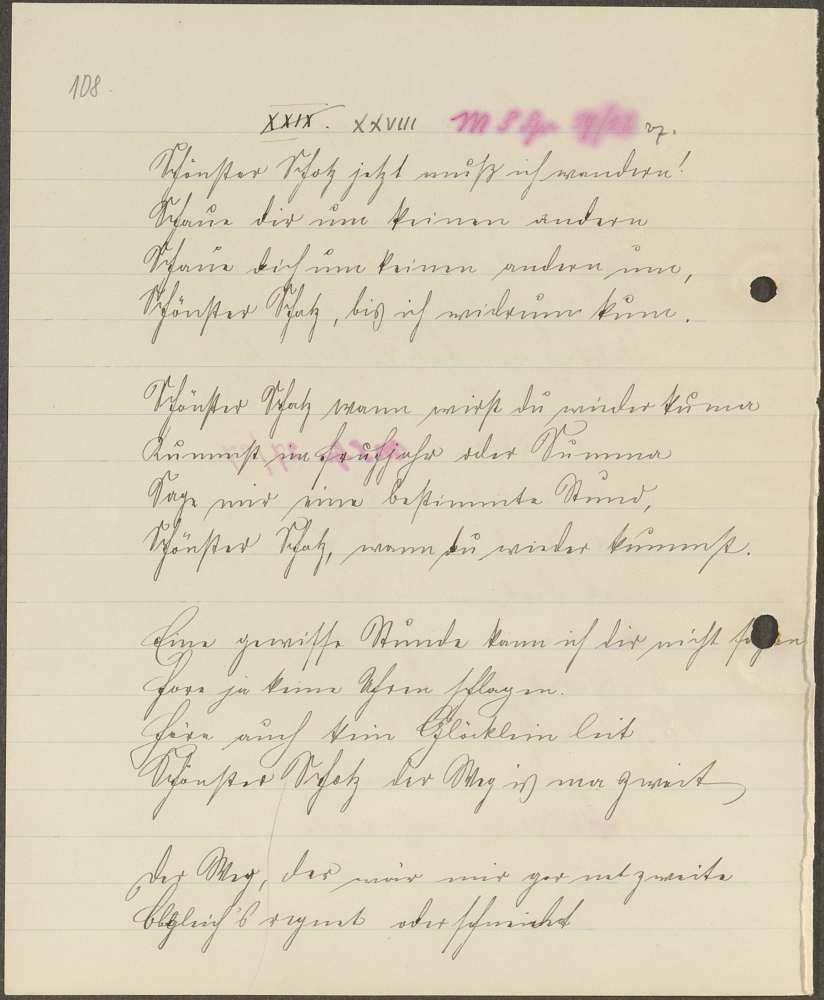 108.
XXIX. XXVIII 27.
Schönster Schatz jetzt muß ich wandern!
Schaue dir um keinen andern
Schaue dich um keinen andern um,
Schönster Schatz, bis ich widrum kum.
Schönster Schatz wann wirst du wieder kuma
Kummst im Fruhjahr oder Summa
Sage mir eine bestimmte Stund,
Schönster Schatz, wann du wieder kummst.
Eine gewisse Stunde kann ich dir nicht sagen
Hore ja keine Uhren schlagen.
Höre auch kein Glöcklein leit
Schönster Schatz der Weg is ma zweit
Der Weg, der wär mir gor net zweite
Obgleich's regnet oder schneidet